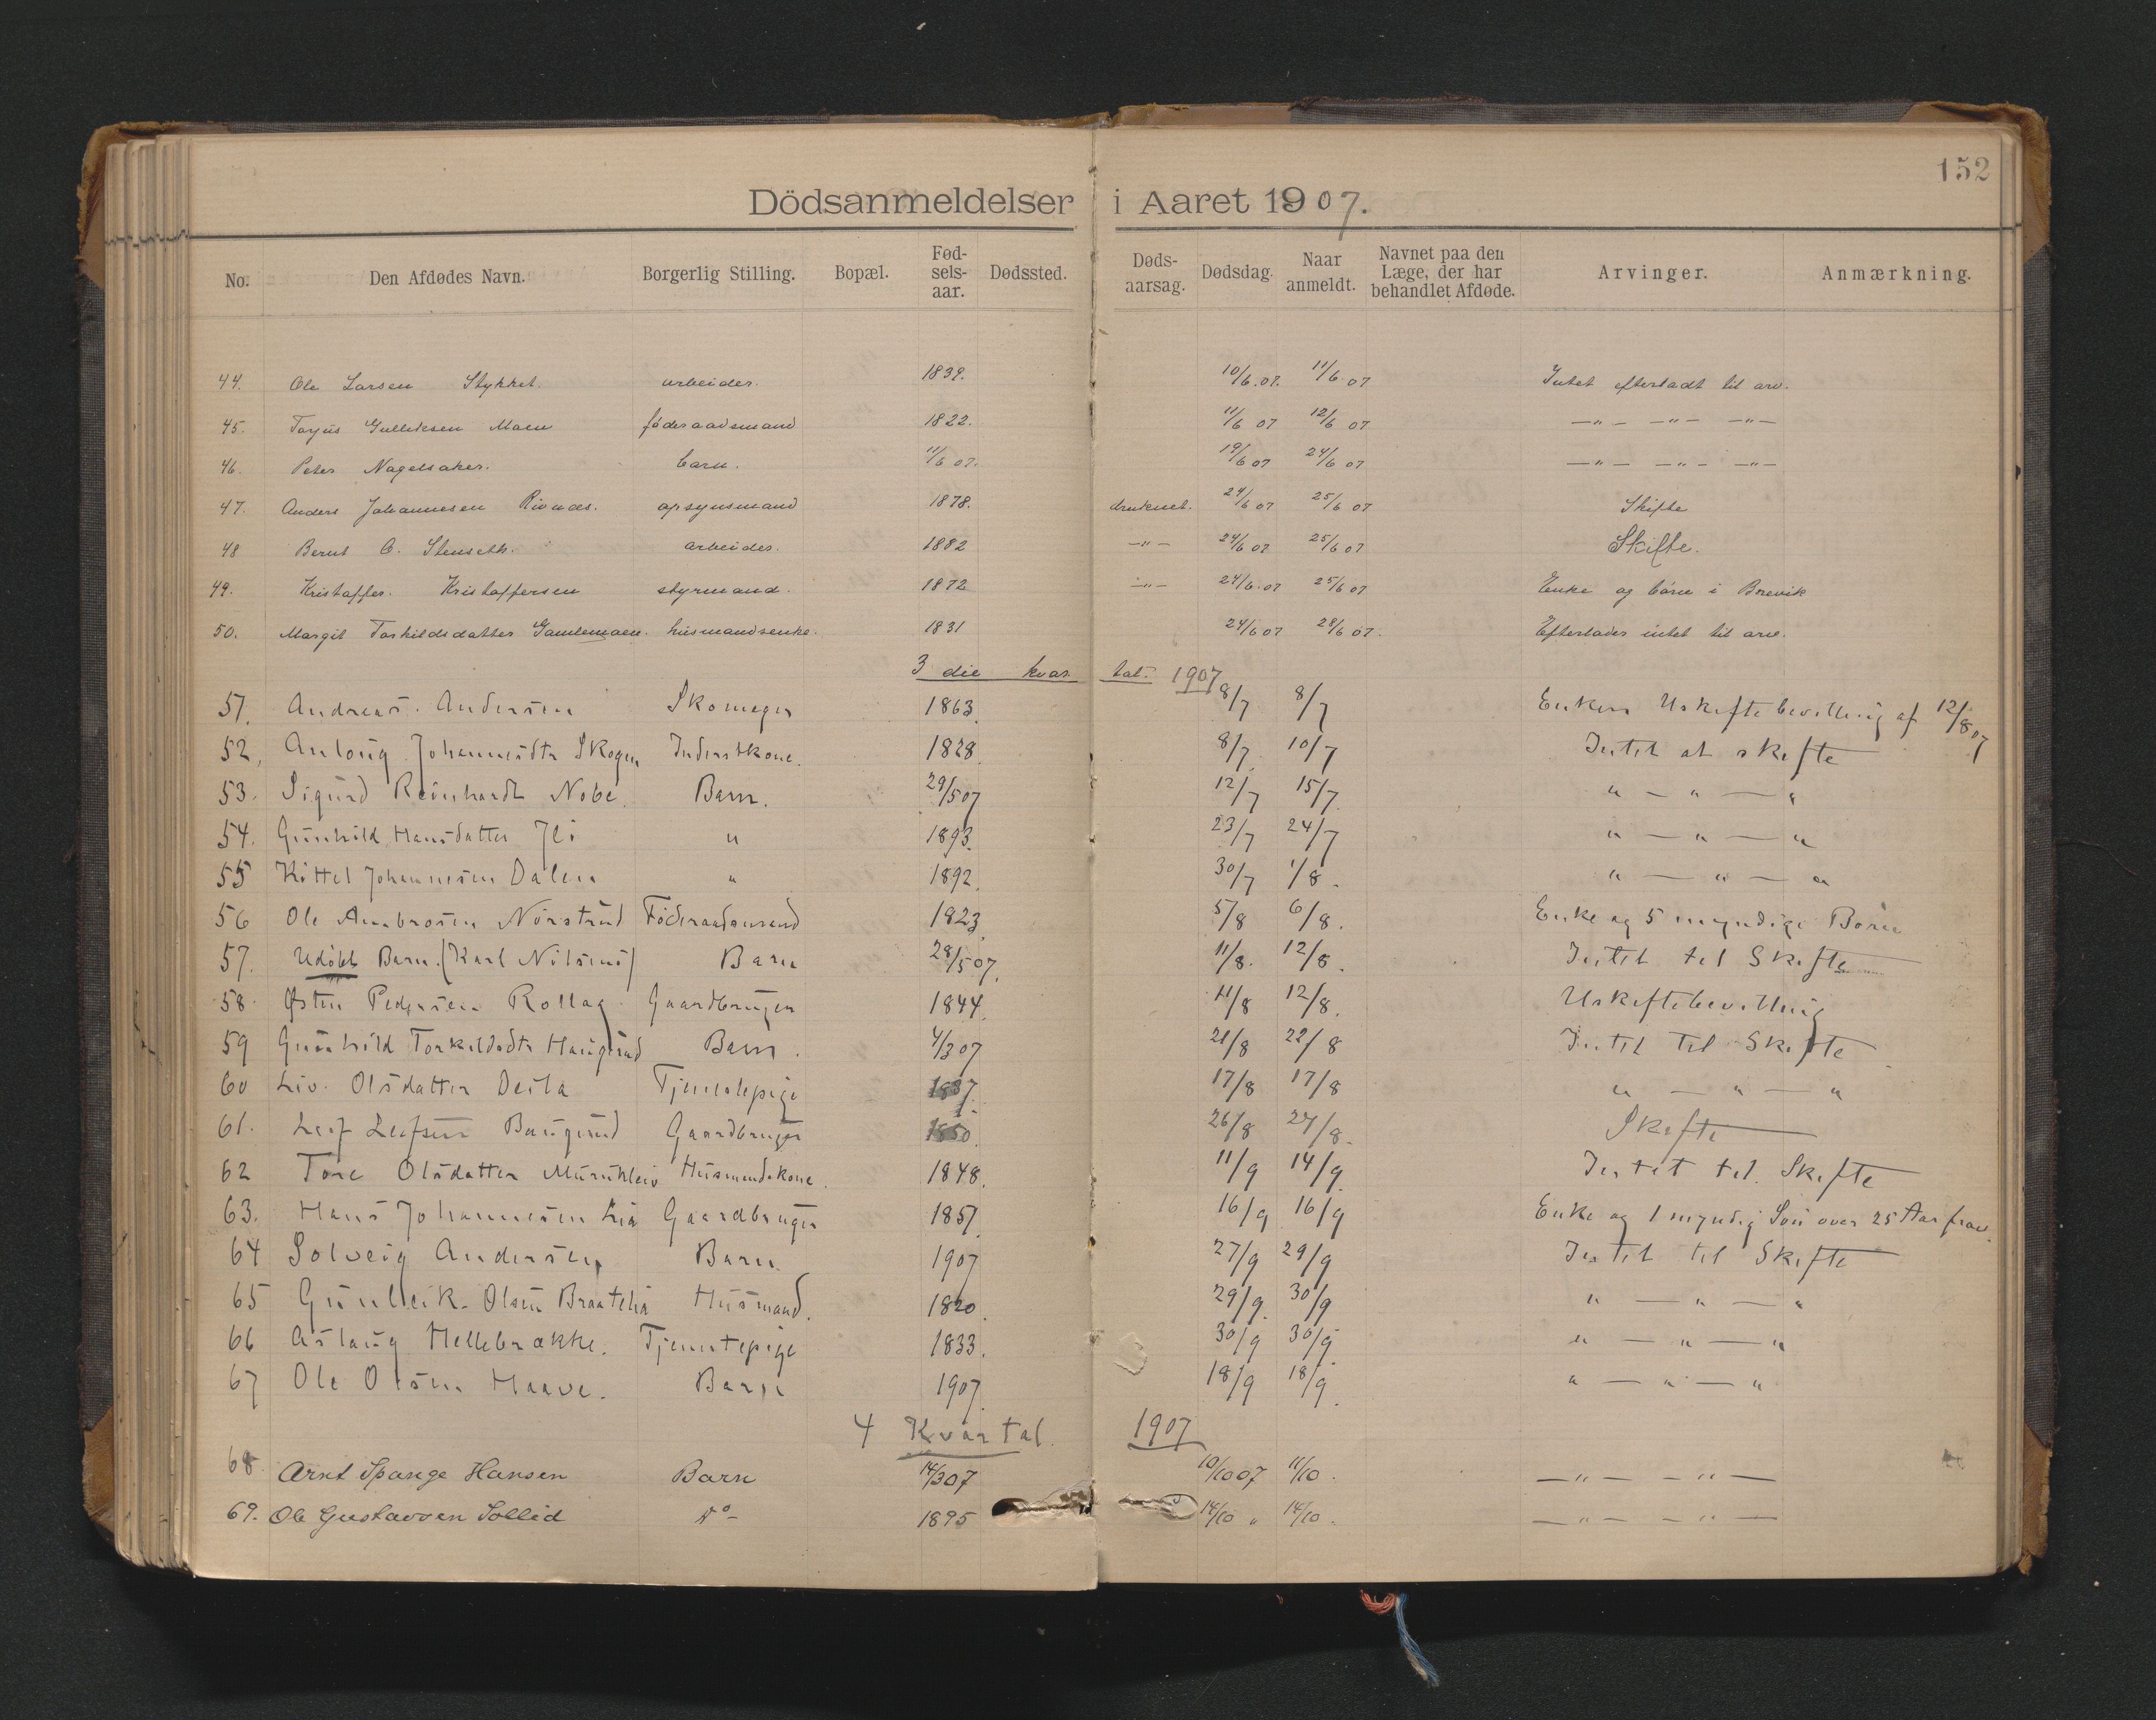 152
Dödsanmeldelser i Aaret 1907.
No. Den Afdødes Navn. Borgerlig Stilling. Bopæl. Fødselsaar. Dødssted. Dødsaarsag. Dødsdag. Naar anmeldt. Navnet paa den Læge, der har behandlet Afdøde. Arvinger. Anmærkning.
44. Ole Larsen Stykket. arbeider. 1839. 10/6.07. 11/6.07 Intet efterladt til arv.
45. Torjus Gulliksen Moen føderaadsmand 1822. 11/6 07 12/6 07 —"— —"— —"—
46. Peter Nagelsaker. barn. 11/6 07. 19/6 07 24/6 07 —"— —"— —"—
47. Anders Johannesen opsynsmand 1878. druknet. 24/6 07 25/6 07 Skifte
48 Bernt O. Stenseth. arbeider. 1882 —"— 24/6 07 25/6 07 Skifte.
49. Kristoffer. Kristoffersen styrmand. 1872 —"— 24/6.07 25/6 07 Enke og børn i Brevik
50. Margit Torkildsdatter Gamlemoen. husmandsenke. 1831 24/6 07 28/6 07. Efterlader intet til arv.
3 die kvartal. 1907
51. Andreas. Andersen Skomager 1863. 8/7 8/7 Enken Uskiftebevilling af 12/8 07
52, Anloug Johannesdtr Skogen Inderstkone. 1828. 8/7. 10/7 Intet at skifte
53. Sigurd Reinhardt Nobe. Barn. 29/5 07 12/7 15/7. " — " — "
54. Gunhild Hansdatter Jli " 1893. 23/7 24/7 " — " — "
55 Kittel Johannesen Dalen " 1892. 30/7 1/8. " — " — "
56 Ole Ambrosen Norstrud Föderaadsmand 1823. 5/8 6/8. Enke og 5 myndige Børn
57. Udöbt Barn. (Karl Nilsens) Barn 28/5 07. 11/8. 12/8. Intet til Skifte
58. Østen Pedersen Rollag Gaardbruger 1844. 11/8 12/8. Uskiftebevilling
59 Gunhild Torkildsdtr Haugerud Barn. 4/3 07 21/8 22/8 Intet til Skifte
60 Liv. Olsdatter Deila Tjenestepige 1837. 17/8 17/8 " — " — "
61. Leif Leifsen Baugerud Gaardbruger 1850. 26/8 27/8. Skifte
62 Tore Olsdatter Husmandskone. 1848. 11/9 14/9. Intet til Skifte
63. Hans Johannesen Lia Gaardbruger 1857. 16/9 16/9 Enke og 1 myndig Søn over 25 Aar frav.
64 Solveig Andersen Barn. 1907 27/9 29/9 Intet til Skifte
65 Gunleik. Olsen Braatelia Husmand. 1820. 29/9. 30/9 " — " — "
66 Aslaug Hellebrække. Tjenestepige 1833. 30/9 30/9. " — " — "
67 Ole Olsen Haave. Barn 1907. 18/9 18/9. " — " — "
4 Kvartal. 1907
68 Arnt Spange Hansen Barn 14/3 07 10/10 07 11/10. —"— —"—
69. Ole Gustavsen Sollid do 1895 14/10 " 14/10. —"— —"—